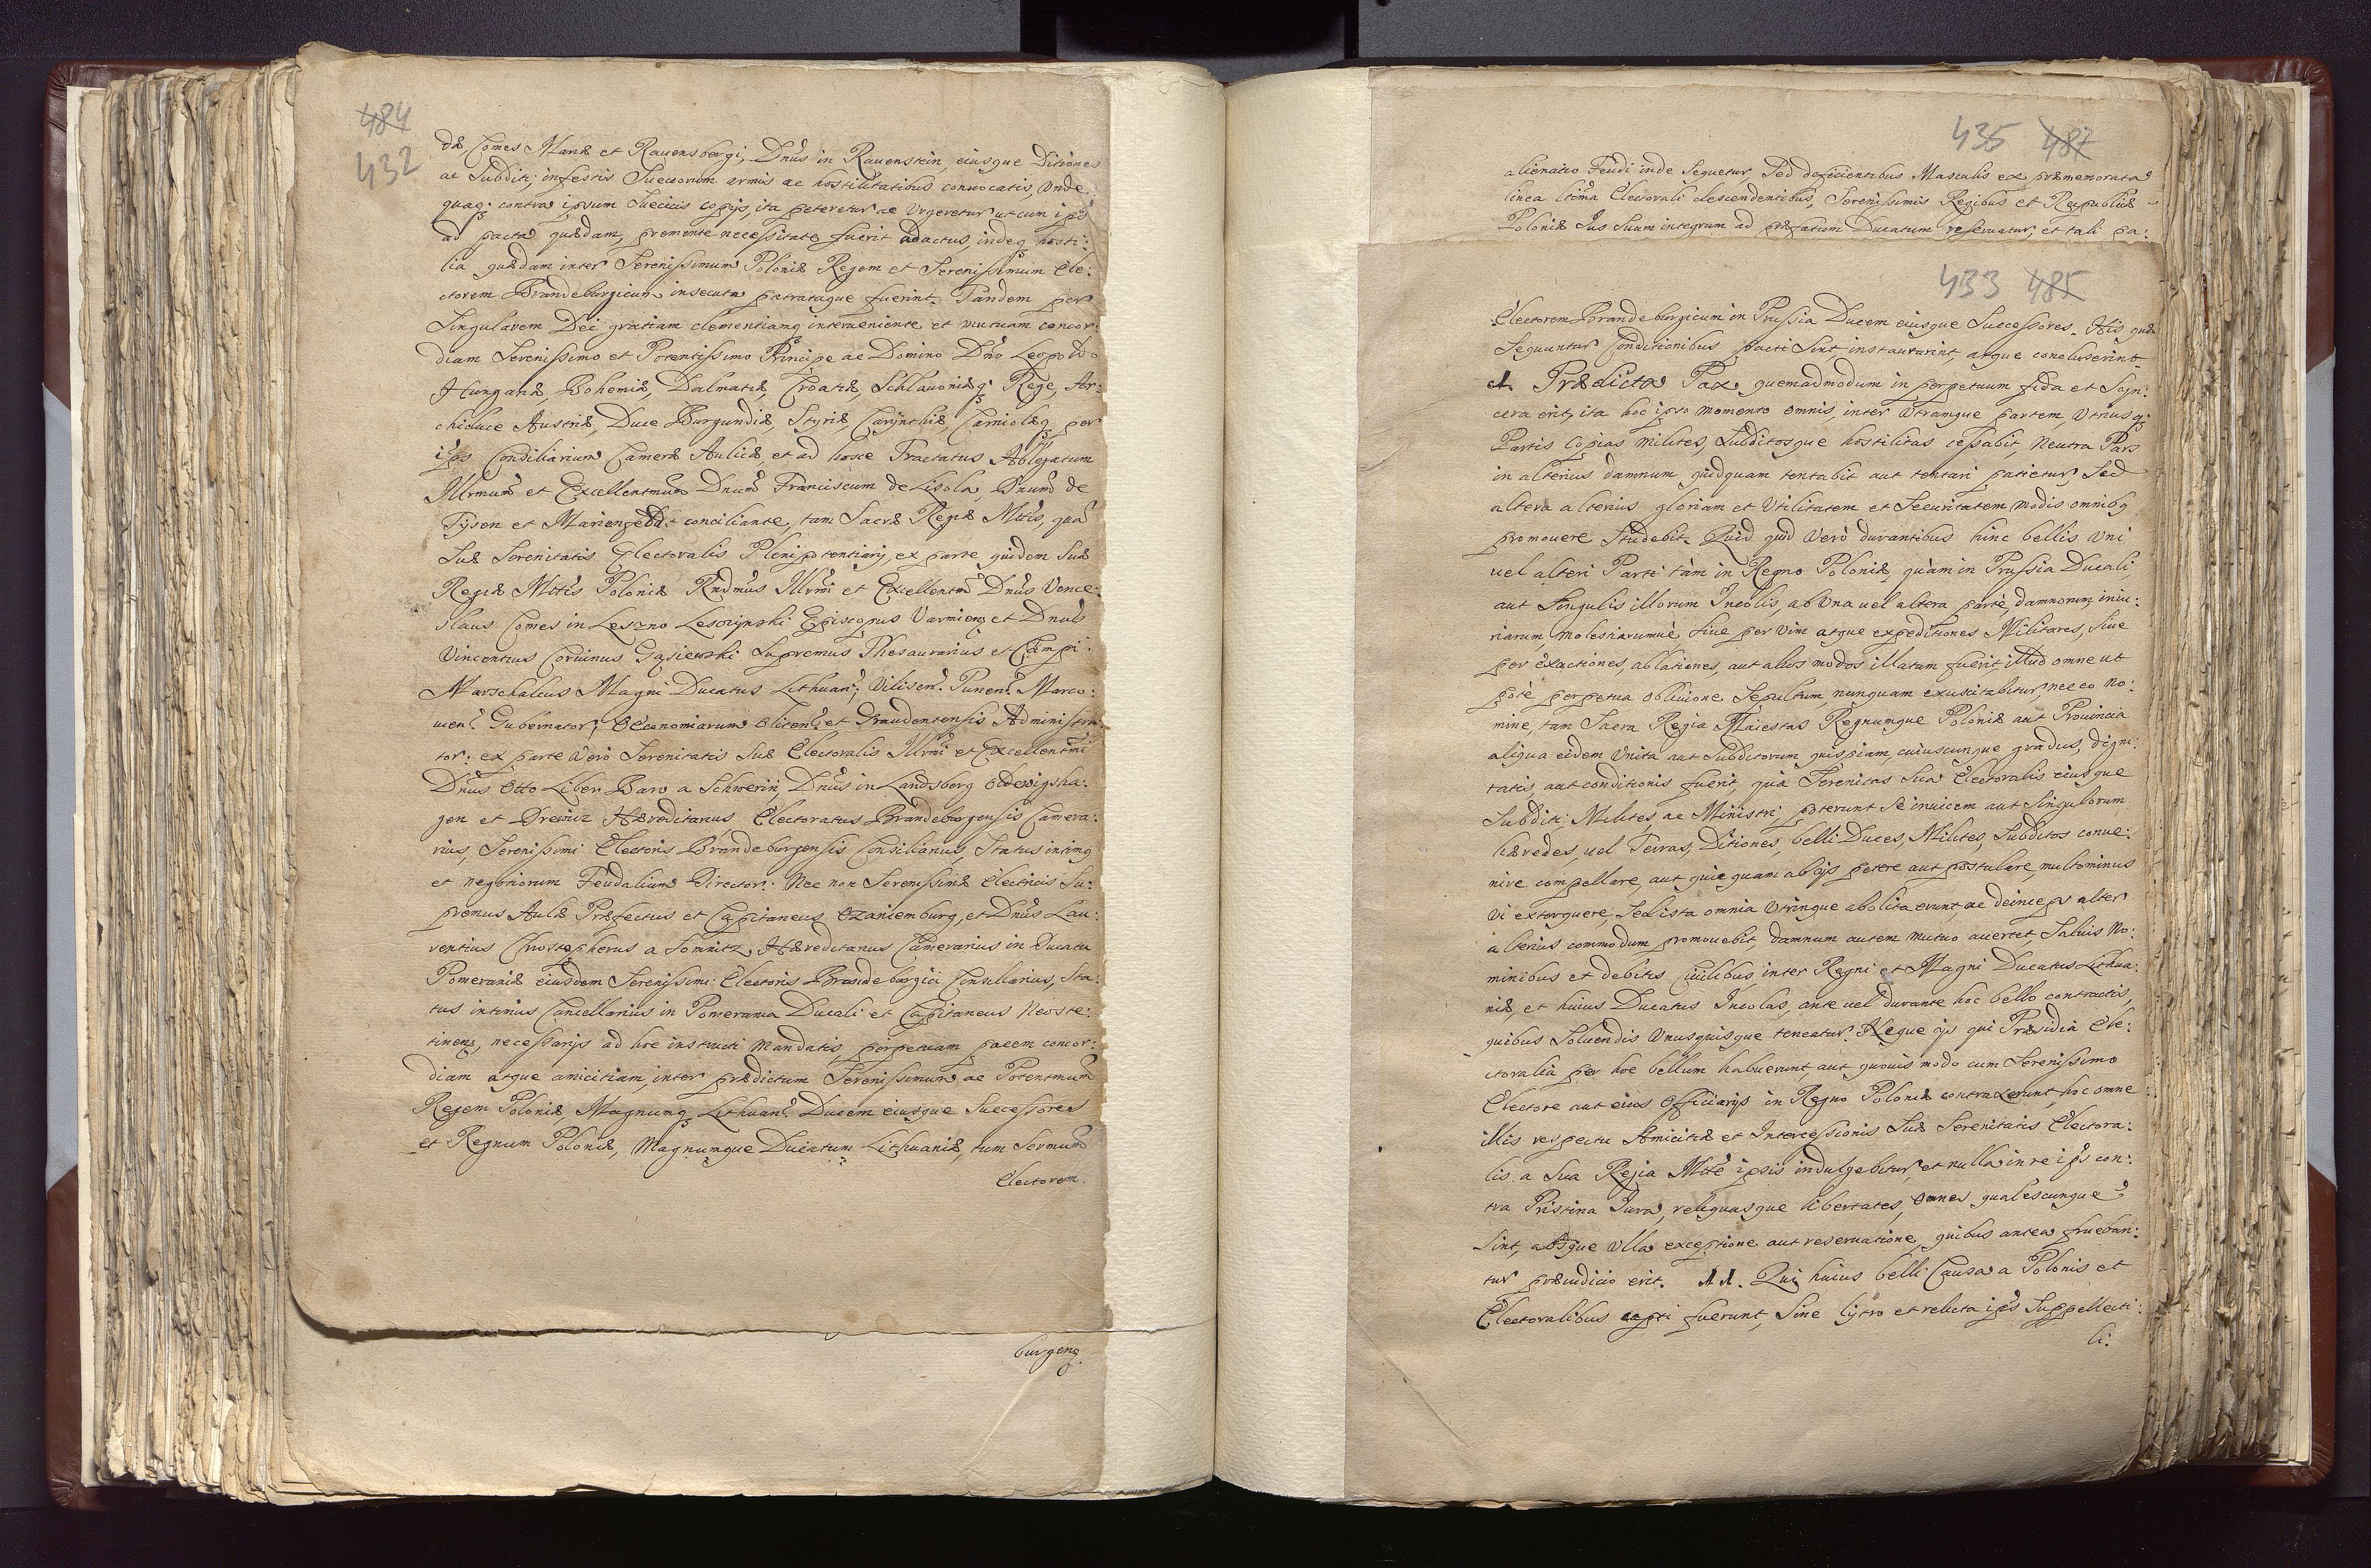 484
432
dæ, Comes Marcæ et Rauensbergi, Dnus in Rauenstein, eiusque Ditiones
ac Subditi, infestis Suecorum armis ac hostilitatibus conuocatis, Unde
quaq; contra ipsum Suecicis copijs, ita peteretur ac Urgeretur ut cum ips
ad pacta quædam, premente necessitate fuerit adactus indeq hosti:
lia quædam inter Serenissimum Poloniæ Regem et Serenissimum Ele:
ctorem Brandeburgicum insecuta patrataque fuerint. Tandem per
Singularem Dei gratiam clementiamq interueniente et mutuam concor:
diam Serenissimo et Potentissimo Principe ac Domino Dno Leopoldo
Hungariæ, Bohemiæ, Dalmatiæ, Croatiæ, Schlauoniæq; Rege, Ar:
chiduce Austriæ, Duce Burgundiæ, Styriæ, Carÿnthiæ, Carniolæq per
ips Consiliarium Cameræ Aulicæ, et ad hosce Tractatus Ablegatum
Illrmum et Excellentmum Dnum Franciscum de Lisola, Dnum de
Tysen et Marienfeldt conciliante, tam Sacræ Regiæ Mttis, qua
Suæ Serenitatis Electoralis Plenipotentiarij, ex parte quidem Suæ
Regiæ Mttis Poloniæ Rndmus Illrmi et Excellentmi Dnus Vence:
slaus Comes in Leszno Lesczynski Episcopus Varmienq et Dnus
Vincentius Coruinus Gąsiewski Supremus Thesaurarius et Campi:
Marschalcus Magni Ducatus Lithuan; Vilisen. Punen. Marco:
uien. Gubernator, Oeconomiarum Oliten. et Graudentensis Administra
tor: ex parte Verò Serenitatis Suæ Electoralis Illrmi et Excellentmi
Dnus Otto Liber Baro a Schwerin, Dnus in Landsberg Oldewigsha:
gen et Drewiz Hæreditarius, Electoratus Brandeburgensis Camera:
rius, Serenissimi Electoris Brandeburgensis Consiliarius, Status intimq
et negotiorum Feudalium Director: Nec non Serenissimæ Electricis Su:
premus Aulæ Præfectus et Capitaneus Oraniemburg, et Dnus Lau:
rentius Christopherus a Somnitz Hæreditarius Camerarius in Ducatu
Pomeraniæ eiusdem Serenissimi Electoris Brandeburgici Consiliarius, Sta:
tus intimus Cancellarius in Pomerania Ducali et Capitaneus Neoste:
tinenq, necessarijs ad hoc instructi Mandatis, perpetuam pacem concor:
diam atque amicitiam, inter prædictum Serenissimum, ac Potentmum
Regem Poloniæ, Magnumq Lithuan. Ducem eiusque Successores
et Regnum Poloniæ, Magnumque Ducatum Lithuaniæ, tum Sermum
Electorem.
burgenq.
435 487
alienatio Feudi inde Sequetur Sed deficientibus Masculis ex præmemorata
linea ltima Electorali descendentibus, Serenissimis Regibus et Reipublicæ
Poloniæ Jus Suum integrum ad præfatum Ducatum reseruatur, et tali ca:
433 485
Electorem Brandeburgicum in Prussia Ducem eiusque Successores. His quæ
Sequuntur Conditionibus pacti Sint, instaurarint, atque concluserint
1. Prædicta Pax, quemadmodum in perpetuum fida et Syn:
cera erit, ita hoc ipso momento omnis, inter Utramque partem, Utriusq;
Partis Copias Milites, Subditosque hostilitas cessabit, Neutra Pars
in alterius damnum quidquam tentabit aut tentari patietur, Sed
altera alterius gloriam et Utilitatem et Securitatem modis omnibq
promouere Studebit. Quid quid Verò durantibus hinc bellis Uni
uel alteri Parti tàm in Regno Poloniæ, quàm in Prussia Ducali
aut Singulis illorum Incolis, ab Una uel altera parte, damnorum, iniu:
riarum, molestiarumuè, Siue per Vim atque expeditiones Militares, Siue
per exactiones, ablationes, aut alios modos illatum fuerit, illud omne ut
potè perpetua obliuione Sepultum, nunquam exuscitabitur, nec eo No:
mine, tam Sacra Regia Maiestas Regnumque Poloniæ aut Prouincia
aliqua eidem Unita aut Subditorum quispiam, cuiuscunque gradus, digni:
tatis, aut conditionis fuerit, quà Serenitas Sua Electoralis eiusque
Subditi Milites, ac Ministri, poterunt Se inuicem aut Singulorum
hæredes, uel Terras, Ditiones, belli Duces, Milites, Subditos conue:
nire compellare, aut quicquam ab ijs petere aut postulare, multominus
Vi extorquere, Sed ista omnia Utrinque abolita erunt, ac deinceps alter
alterius commodum promouebit, damnum autem mutuo auertet, Saluis No:
minibus et debitis Ciuilibus, inter Regni et Magni Ducatus Lithua:
niæ, et huius Ducatus Incolas, ante uel durante hoc bello contractis,
quibus Soluendis Unusquisque teneatur. Neque ijs qui Præsidia Ele:
ctoralia per hoc bellum habuerunt, aut quouis modo cum Serenissimo
Electore aut eius Officiarijs in Regno Poloniæ contraxerunt, hoc omne
illis respectu Amicitiæ et Intercessionis Suæ Serenitatis Electora:
lis a Sua Regia Mtte ipsis indulgebitur, et nulla in re ips con:
tra Pristina Jura, reliquasque libertates, Omnes qualescunque
Sint, absque Ulla exceptione aut reseruatione, quibus antea fruеban:
tur præiudicio erit. 11. Qui huius belli Causa a Polonis et
Electoralibus capti fuerunt, Sine lytro et relicta ips Suppellecti:
li: